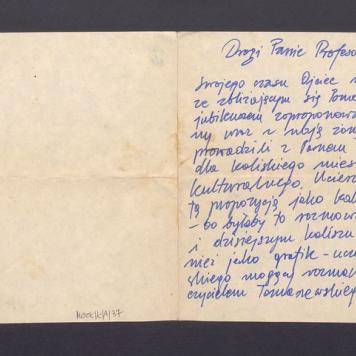 Drogi Panie Profeso
Swojego czasu Ojciec
ze zbliżającym się
jubileuszem zaproponowa
my wraz z moją żon
prowadzili z Panem
dla kaliskiego mies
kulturalnego. Ucier
tą propozycją jako kali
- bo byłaby to rozmowa
i dzisiejszym Kaliszu
nież jako grafik - ucz
skiego mogący rozma
czycielem Tomaszewskieg